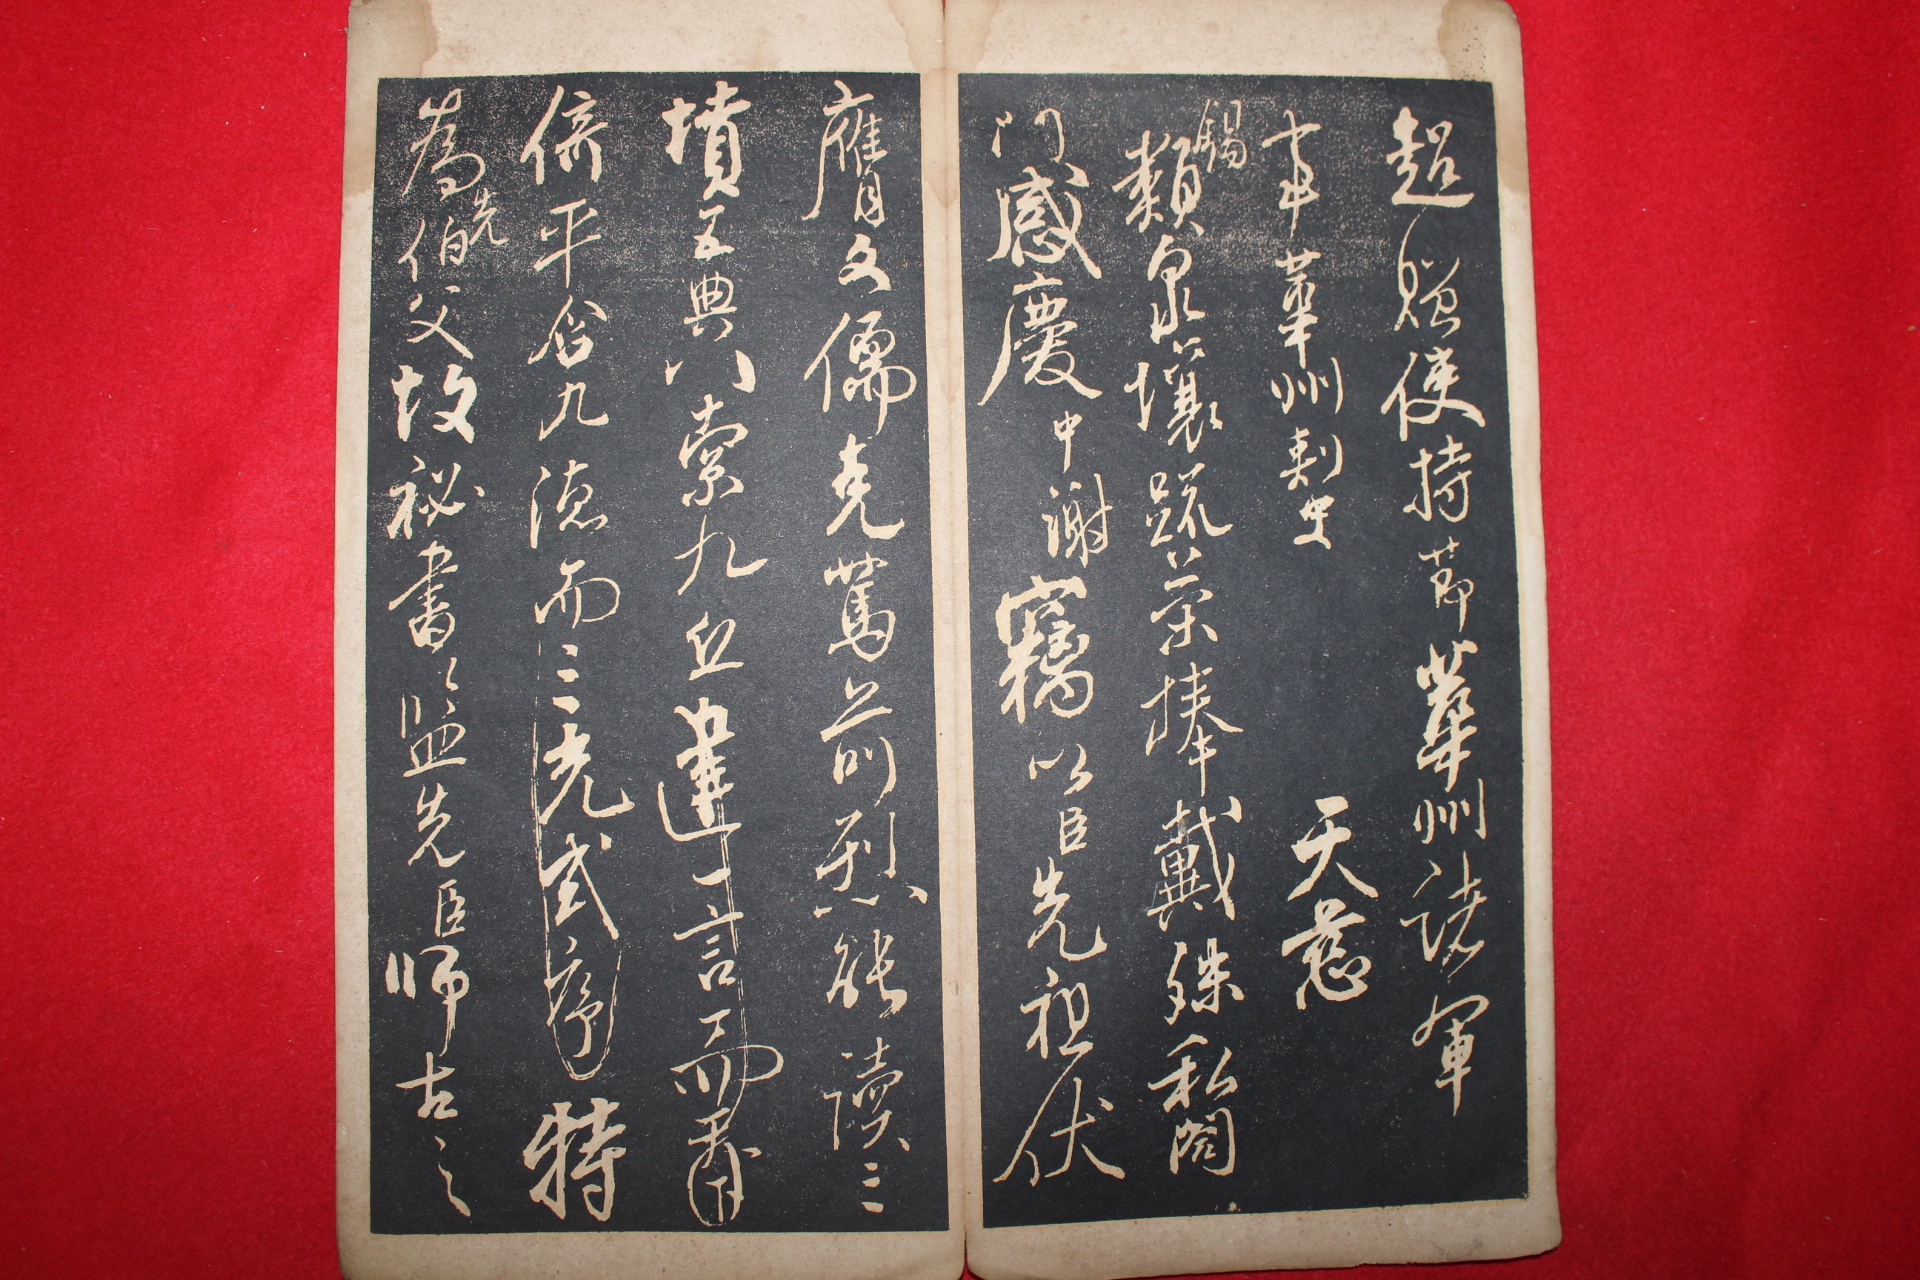 超贈使持節華州諸軍
事華州刺史 天慈
錫類泉壤疏榮捧戴殊私闔
門感慶中謝竊以臣先祖伏
膺文儒克篤前烈能讀三
墳五典八索九丘一言而
平含九德而三光式序特
為先伯父故秘書監先臣師古之